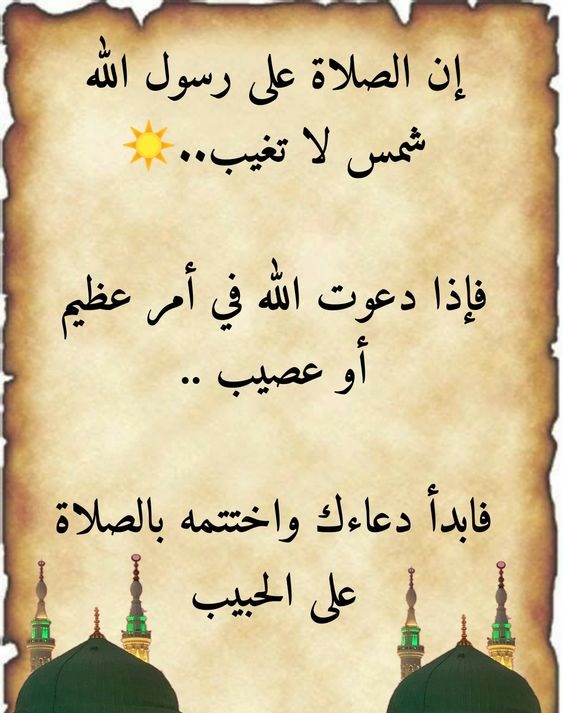 إن الصلاة على رسول الله
شمس لا تغيب..☀️
فإذا دعوت الله في أمر عظيم
أو عصيب ..
فابدأ دعاءك واختتمه بالصلاة
على الحبيب